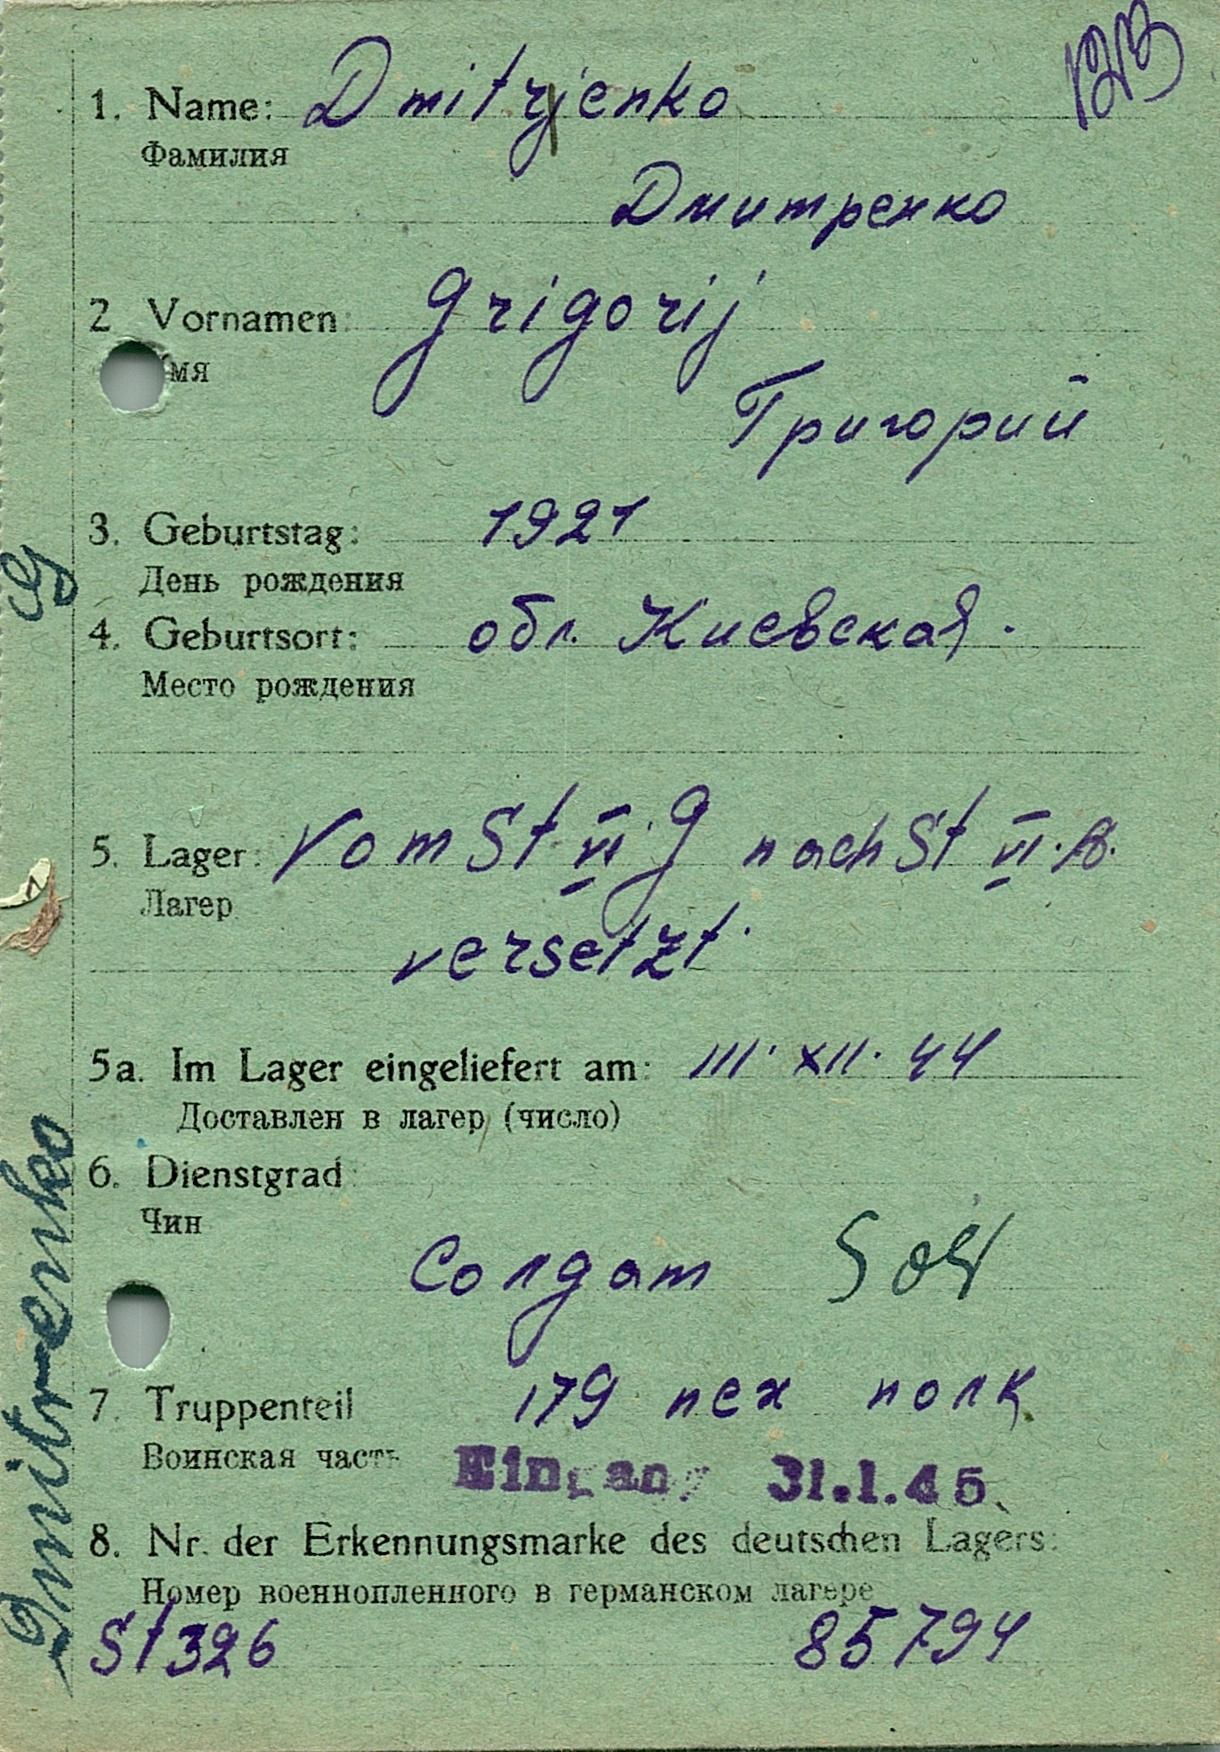 1. Name: Dmitrjenko
Фамилия
Дмитренко
2 Vornamen: Grigorij
мя
Григорий
3. Geburtstag: 1921
День рождения
4. Geburtsort: обл. Киевская.
Место рождения
5. Lager: Vom St. VI G nach St VI. A.
Лагер
versetzt.
5a. Im Lager eingeliefert am: III. XII. 44
Доставлен в лагер (число)
6. Dienstgrad
Чин
Солдат Sold
7. Truppenteil 179 пех полк
Воинская часть
Eingang 31.1.45
8. Nr. der Erkennungsmarke des deutschen Lagers:
Номер военнопленного в германском лагере
St 326 85794
Dmitrenko G